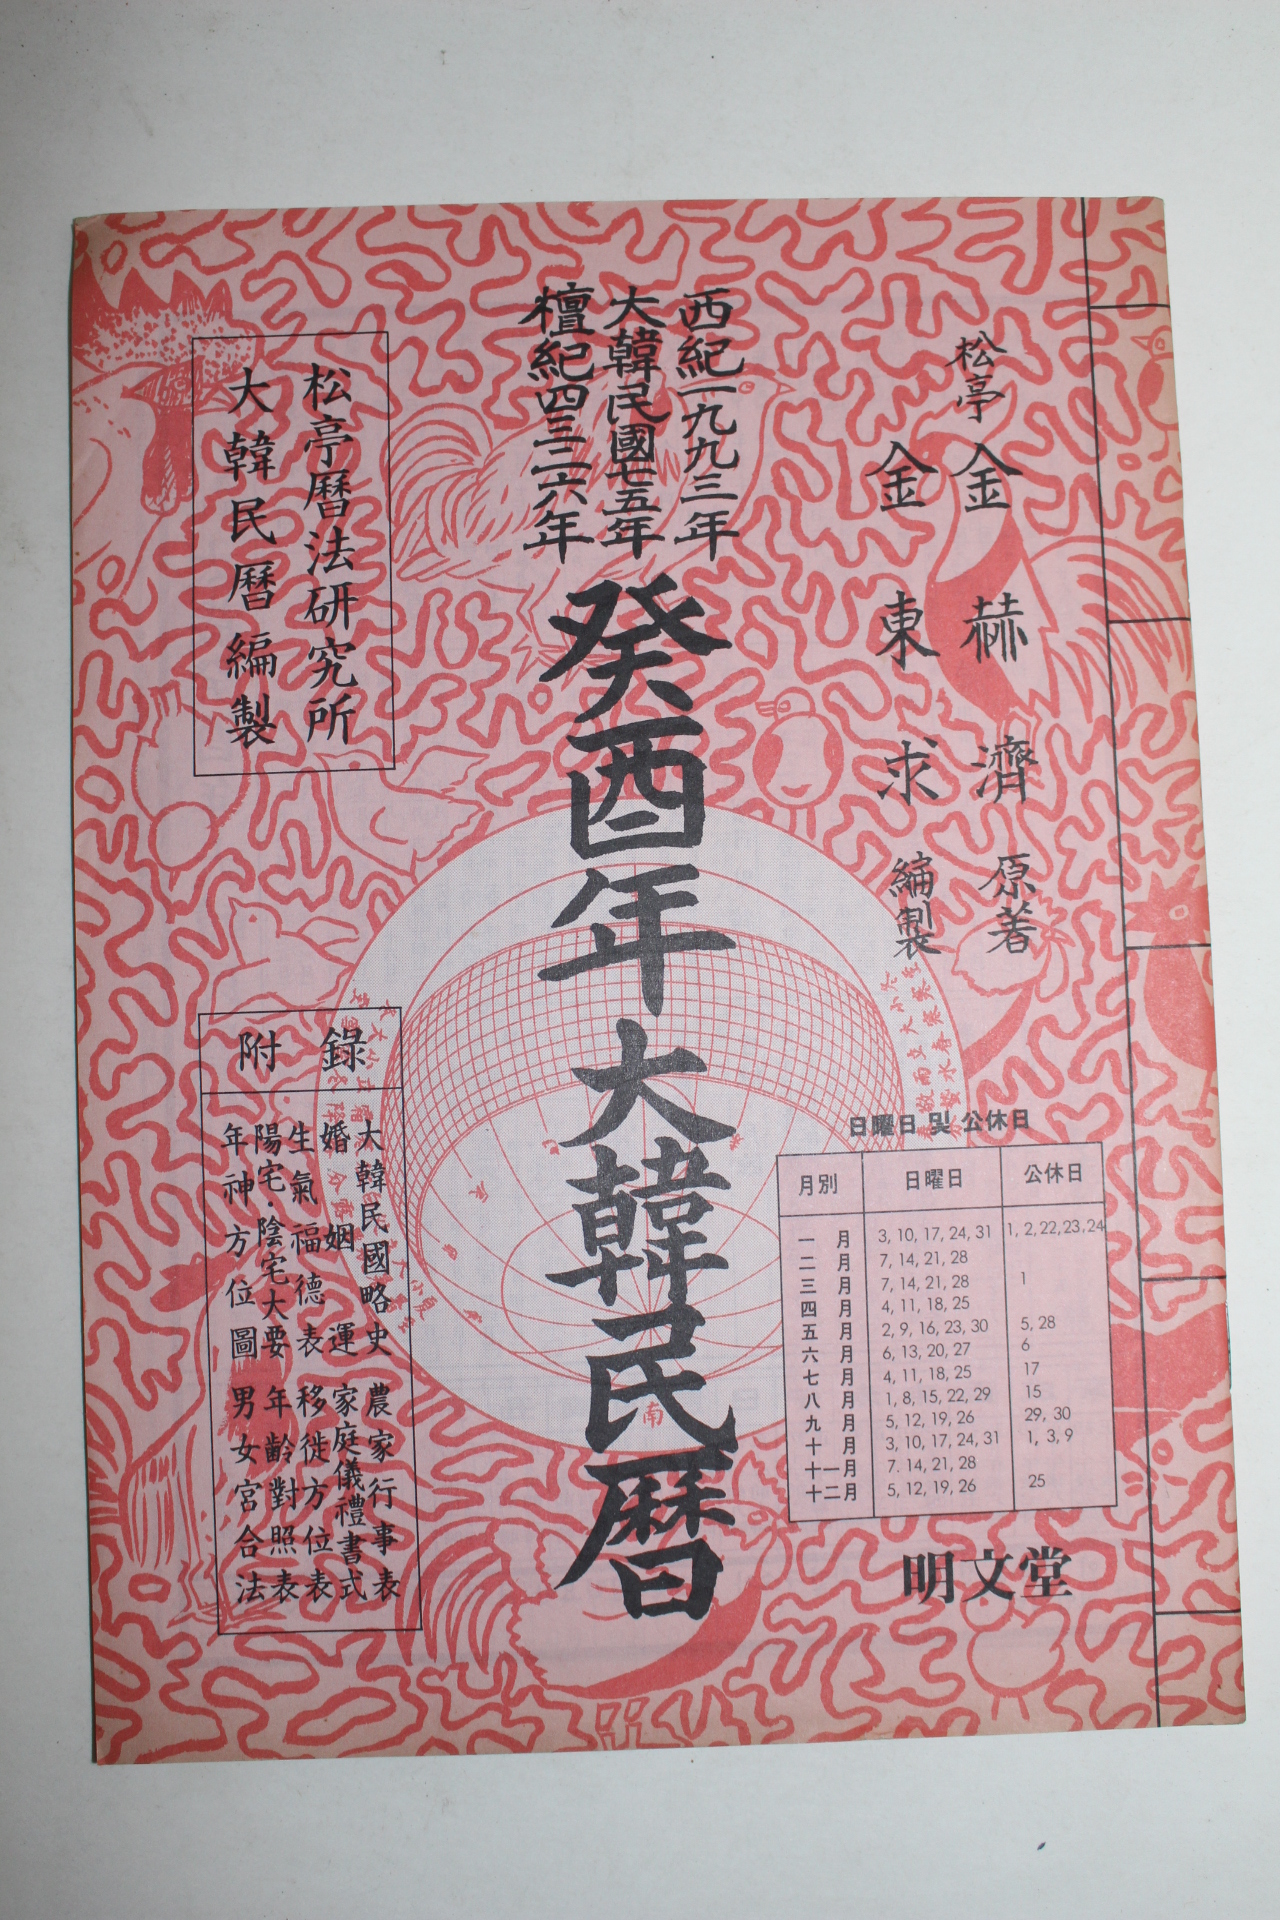 西紀一九九三年
大韓民國七五年
檀紀四三二六年
癸酉年大韓民曆
松亭 金赫濟 原著
金東求 編製
松亭曆法研究所
大韓民曆編製
附錄
大韓民國略史 農家行事表
婚姻運 家庭儀禮書式
生氣福德表 移徙方位表
陽宅·陰宅大要 年齡對照表
年神方位圖 男女宮合法
日曜日 및 公休日
月別 日曜日 公休日
一月 3, 10, 17, 24, 31 1, 2, 22, 23, 24
二月 7, 14, 21, 28
三月 7, 14, 21, 28 1
四月 4, 11, 18, 25
五月 2, 9, 16, 23, 30 5, 28
六月 6, 13, 20, 27 6
七月 4, 11, 18, 25 17
八月 1, 8, 15, 22, 29 15
九月 5, 12, 19, 26 29, 30
十月 3, 10, 17, 24, 31 1, 3, 9
十一月 7. 14, 21, 28
十二月 5, 12, 19, 26 25
明文堂
南